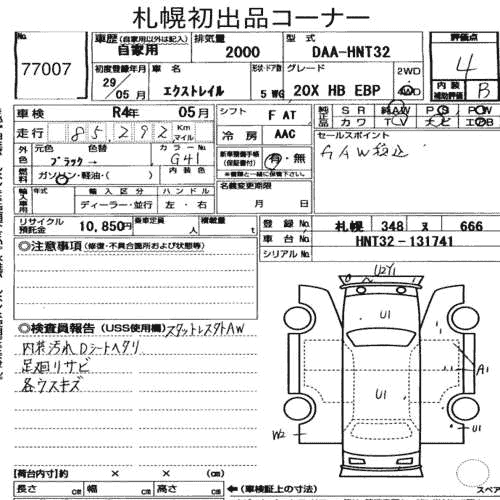 札幌初出品コーナー
No. 77007
車歴 (自家用以外は記入) 自家用
排気量 2000
型式 DAA-HNT32
評価点 4
内装補助評価 B
初度登録年月 29/05月
車名 エクストレイル
形状・ドア数 5 WG
グレード 20X HB EBP
2WD
4WD
車検 R4年 05月
シフト F AT
純正品 SR 純AW PS PW
カワ TV ナビ エアB
走行 85,292 Km マイル
冷房 AAC
セールスポイント
外色 元色 ブラック→ 色替
カラーNo. G41
内装色
新車整備手帳 (保証書付) 有・無
※書類と一緒に保管下さい。
燃料 ガソリン・軽油・( )
名義変更期限 月 日
輸入車用 年式 輸入区分 ディーラー・並行 ハンドル 左・右
リサイクル預託金 10,850円
乗車定員 人
積載量 t
登録No. 札幌 348 ヌ 666
車台No. HNT32-131741
シリアルNo.
◎注意事項 (修復・不具合箇所および状態等)
◎検査員報告 (USS使用欄) スタットレスタAW
内装汚れ Dシートヘタリ
足廻リサビ
各ウスキズ
U2Y1
U1
A1
U1
W2
U1
【荷台内寸】約 × × (cm)
長さ cm 幅 cm 高さ cm
←(車検証上の寸法)
スペア